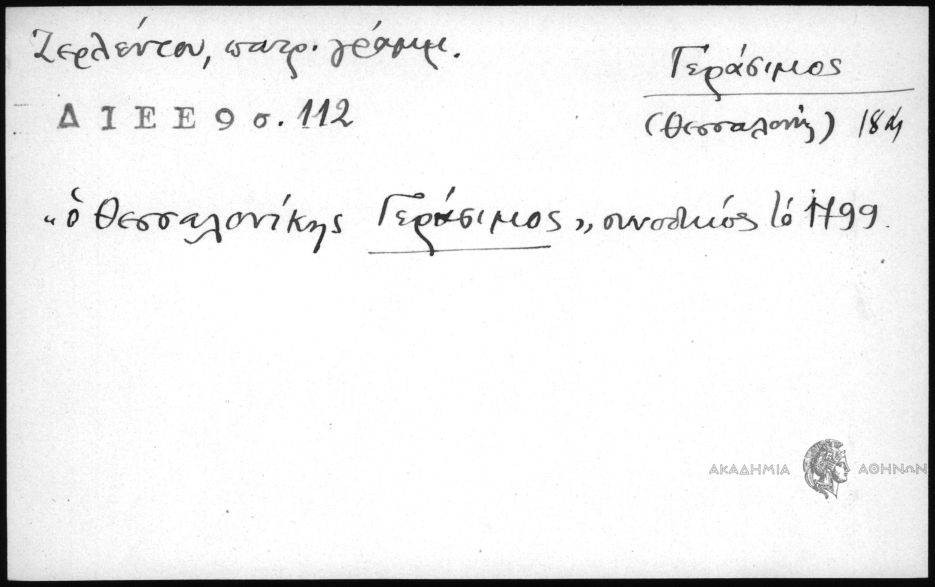 Ζερλέντου, πατρ. γράμμ.
Γεράσιμος
ΔΙΕΕ 9 σ. 112
(Θεσσαλονίκης) 18
"ὁ Θεσσαλονίκης Γεράσιμος", συνοδικός τό 1799.
ΑΚΑΔΗΜΙΑ ΑΘΗΝΩΝ